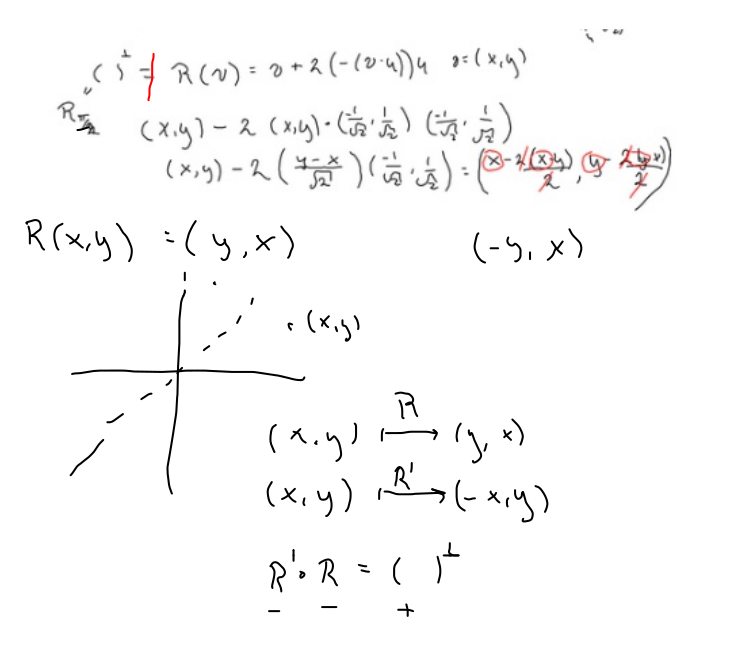 ( )^⊥ = R(v) = v + 2(-(v·u))u v=(x,y)
R_{π/2}
(x,y) - 2 (x,y)·(-1/√2, 1/√2) (-1/√2, 1/√2)
(x,y) - 2 ((y-x)/√2)(-1/√2, 1/√2) = (x - 2(x-y)/2, y - 2(y-x)/2)
R(x,y) = (y,x) (-y,x)
(x,y)
(x,y) ↦^R (y,x)
(x,y) ↦^{R'} (-x,y)
R'∘R = ( )^⊥
- - +